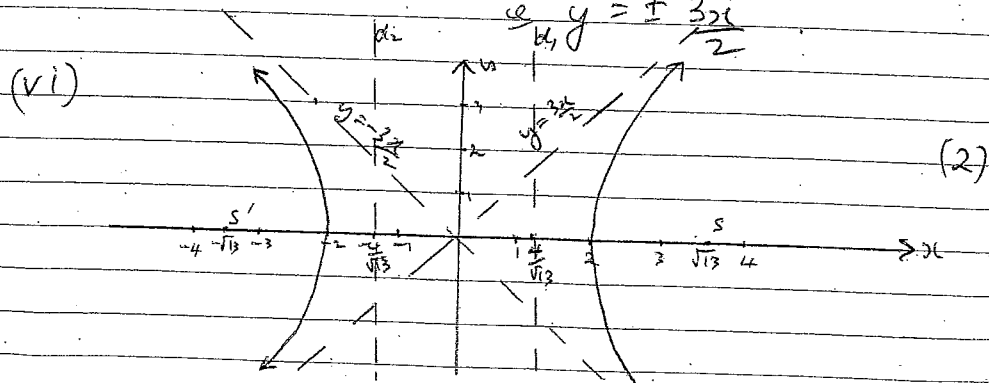 ie y = ± 3x/2
d₂ d₁
(vi)
y
3
y = -3x/2
y = 3x/2
2
(2)
1
S' S
-4 -√13 -3 -2 -4/√13 -1 1 4/√13 2 3 √13 4 x